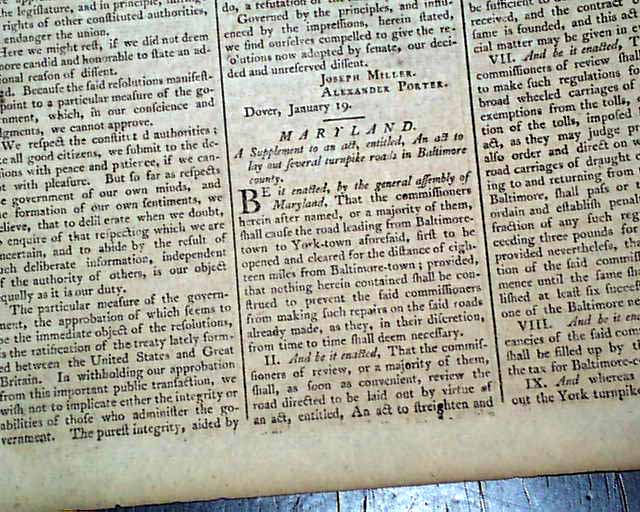 the legislature, and in principle,
rights of other constituted authorities,
endanger the union.
Here we might rest, if we did not deem
more candid and honorable to state an ad-
ional reason of dissent.
Because the said resolutions manifest-
point to a particular measure of the go-
nment, which, in our conscience and
dgments, we cannot approve.
We respect the constitut d authorities;
all good citizens, we submit to the de-
ions with peace and patience, if we can-
t with pleasure. But so far as respects
e government of our own minds, and
e formation of our own sentiments, we
elieve, that to deliberate when we doubt,
enquire of that respecting which we are
ncertain, and to abide by the result of
uch deliberate information, independent
f the authority of others, is our object
equally as it is our duty.
The particular measure of the govern-
ment, the approbation of which seems to
be the immediate object of the resolutions,
is the ratification of the treaty lately form-
ed between the United States and Great
Britain. In withholding our approbation
from this important public transaction, we
wish not to implicate either the integrity or
abilities of those who administer the go-
vernment. The purest integrity, aided by
do, a refutation of the
Governed by the principles, and influ-
enced by the impressions, herein stated,
we find ourselves compelled to give the re-
solutions now adopted by senate, our deci-
ded and unreserved dissent.
JOSEPH MILLER.
ALEXANDER PORTER.
Dover, January 19.
MARYLAND.
A Supplement to an act, entitled, An act to
lay out several turnpike roads in Baltimore
county.
BE it enacted, by the general assembly of
Maryland, That the commissioners
herein after named, or a majority of them,
shall cause the road leading from Baltimore-
town to York-town aforesaid, first to be
opened and cleared for the distance of eigh-
teen miles from Baltimore-town; provided,
that nothing herein contained shall be con-
strued to prevent the said commissioners
from making such repairs on the said roads
already made, as they, in their discretion,
from time to time shall deem necessary.
II. And be it enacted, That the commis-
sioners of review, or a majority of them,
shall, as soon as convenient, review the
road directed to be laid out by virtue of
an act, entitled, An act to streighten and
be sufficient to
received, and the contract
same is founded, and this act
cial matter may be given in
VII. And be it enacted, T
commissioners of review shall
to make such regulations f
broad wheeled carriages of
exemptions from the tolls,
tion of the tolls, imposed
act, as they may judge p
also order and direct on w
road carriages of draught
ing to and returning from
Baltimore, shall pass or
ordain and establish penal
fraction of any such reg
ceeding three pounds for
provided nevertheless, th
tion of the said commis
mence until the same s
lished at least six succes
one of the Baltimore n
VIII. And be it en
cancies of the said com
shall be filled up by th
the tax for Baltimore
IX. And whereas
out the York turnpike